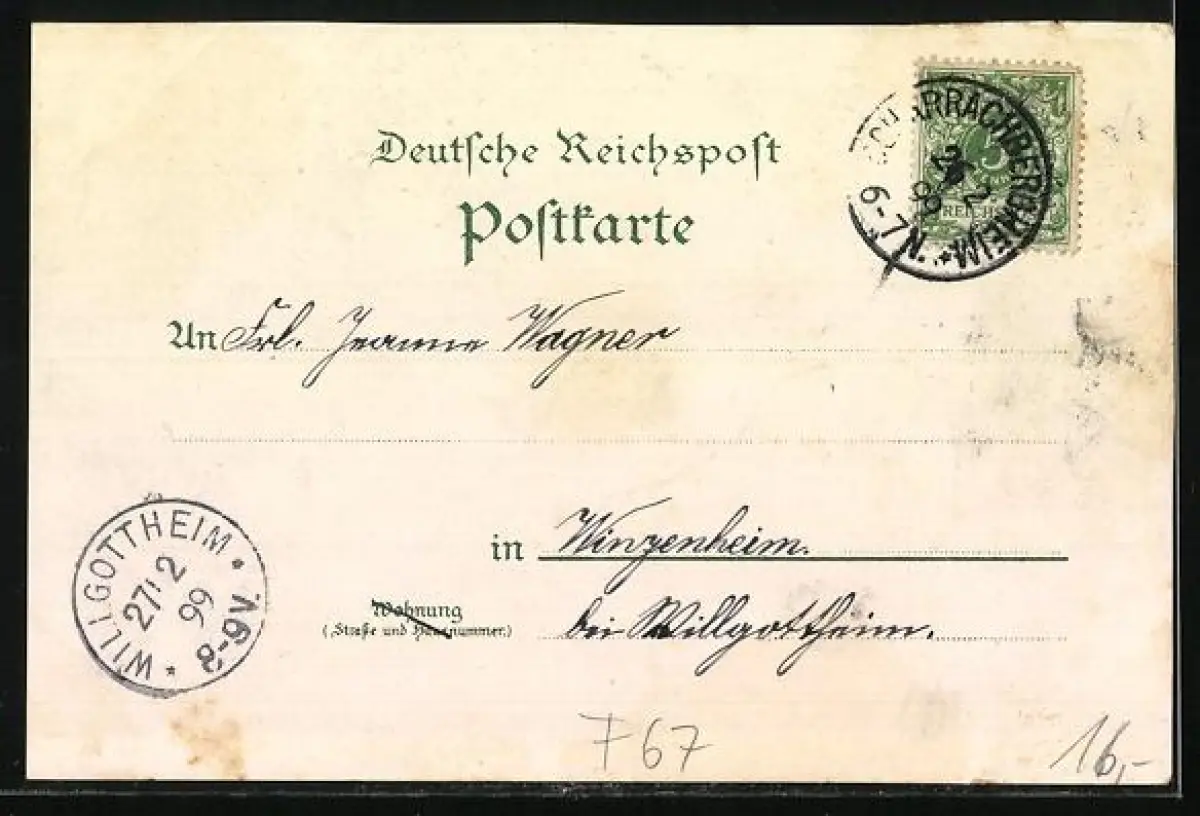 Deutsche Reichspost
Postkarte
SCHARRACHBERGHEIM *
2
99
6-7 N.
5
REICHS
An Frl. Jeanne Wagner
in Winzenheim.
Wohnung
(Straße und Hausnummer.)
bei Willgottheim.
* WILLGOTTHEIM *
27 2
99
8-9V.
F67
16,-